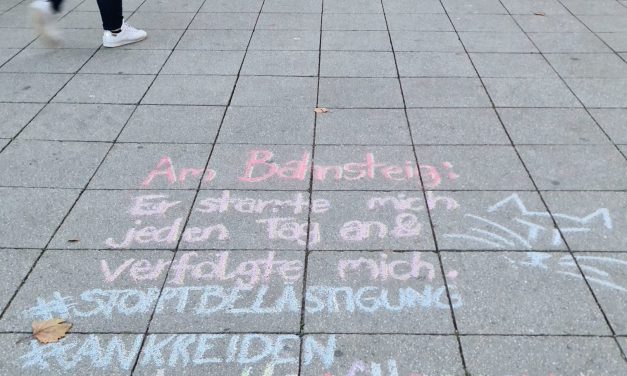 Am Bahnsteig:
Er starrte mich
jeden Tag an &
verfolgte mich.
#STOPPTBELÄSTIGUNG
#ANKREIDEN